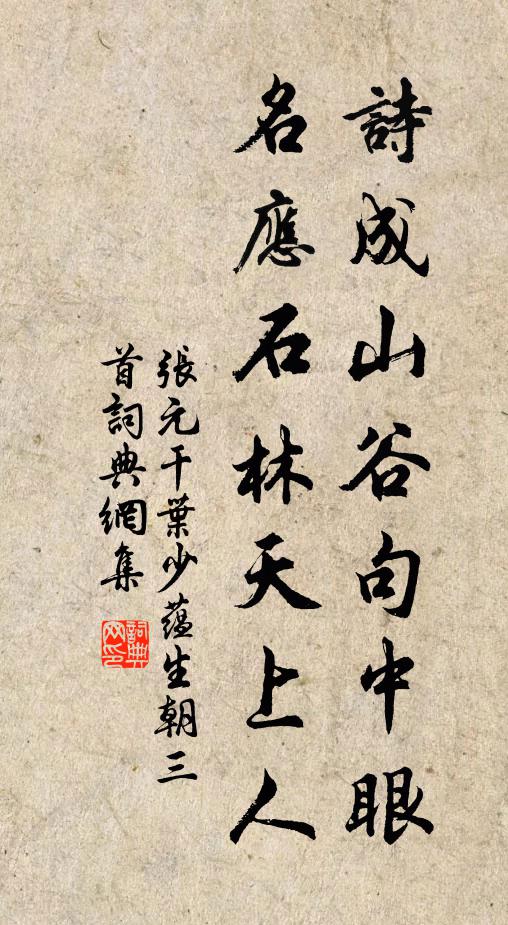 詩成山谷句中眼
名應石林天上人
張元干葉少蕴生朝三
首詞典網集
詞典網印